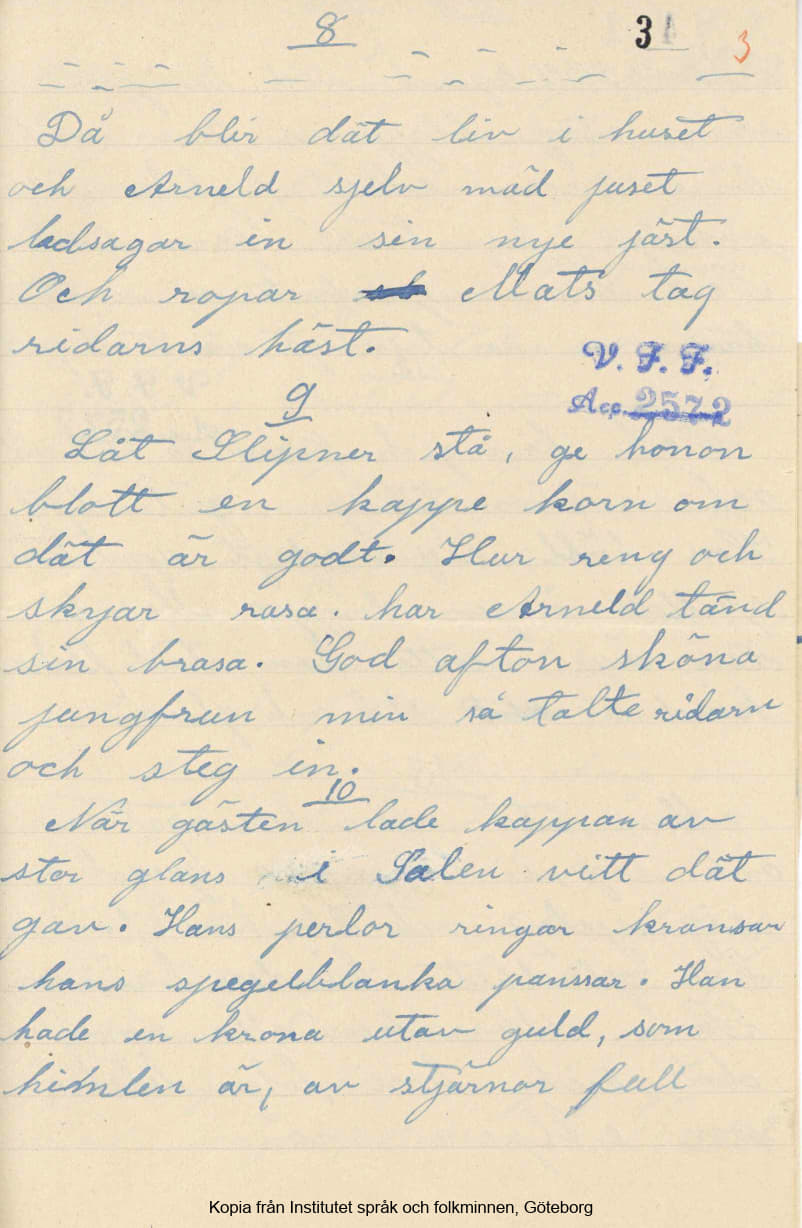 8
3 4 3
Då blir dät liv i huset
och Arneld sjelv mäd juset
ledsagar in sin nye jäst.
Och ropar Mats tag
ridarns häst.
V. F. F.
Acc. 2572
9
Låt Slipner stå, ge honon
blott en kappe korn om
dät är godt. Hur reng och
skyar rasa. har Arneld tänd
sin brasa. God afton sköna
jungfrun min så talte ridarn
och steg in.
10
När gästen lade kappan av
stor glans i Salen vitt dät
gav. Hans perlor ringar kransar
hans spegelblanka panssar. Han
hade en krona utav guld, som
himlen är, av stjärnor full
Kopia från Institutet språk och folkminnen, Göteborg